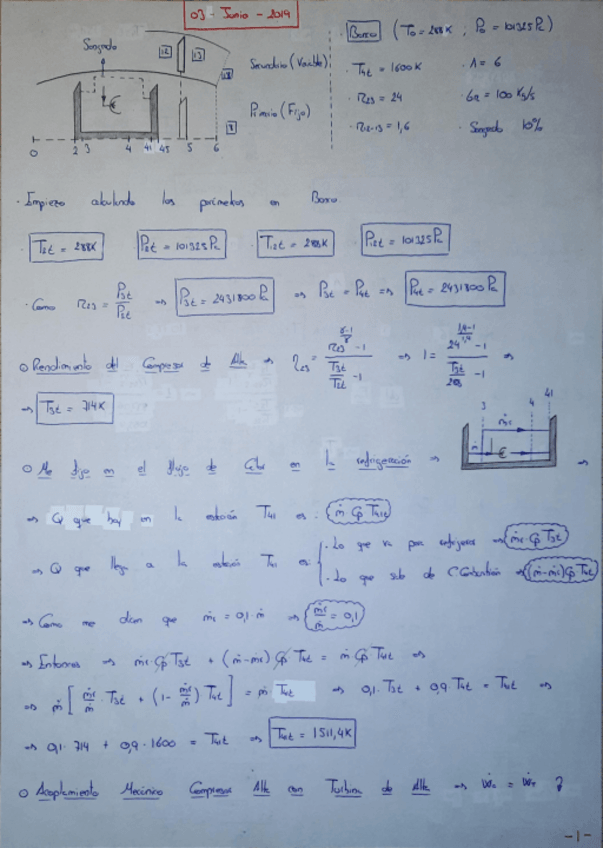 03 - Junio - 2019
Sangrado
12
13
18
8
Secundario (Variable)
Primario (Fijo)
0 2 3 4 41 45 5 6
Banco (T0 = 288K ; P0 = 101325 Pa)
· T4t = 1600K · Λ = 6
· π23 = 24 · Ga = 100 Kg/s
· π12-13 = 1,6 · Sangrado 10%
· Empiezo calculando los parámetros en Banco.
· T2t = 288K P2t = 101325 Pa · T12t = 288K P12t = 101325 Pa
· Como π23 = P3t/P2t ⇒ P3t = 2431800 Pa ⇒ P3t = P4t ⇒ P4t = 2431800 Pa
○ Rendimiento del Compresor de Alta ⇒ η23 = (π23^((γ-1)/γ) - 1)/(T3t/T2t - 1) ⇒ 1 = (24^((1,4-1)/1,4) - 1)/(T3t/288 - 1) ⇒
⇒ T3t = 714K
3 4 41
○ Me fijo en el flujo de Calor en la refrigeración ⇒ ⇒
⇒ Q que hay en la estación T41 es: ṁ Cp T41t
⇒ Q que llega a la estación T41 es: · Lo que va por refrigerar ⇒ ṁc Cp T3t
· Lo que sale de C Combustión ⇒ (ṁ-ṁc) Cp T4t
⇒ Como me dicen que ṁc = 0,1 · ṁ ⇒ ṁc/ṁ = 0,1
⇒ Entonces ⇒ ṁc Cp T3t + (ṁ-ṁc) Cp T4t = ṁ Cp T41t ⇒
⇒ ṁ [ṁc/ṁ · T3t + (1 - ṁc/ṁ) T4t] = ṁ · T41t ⇒ 0,1 · T3t + 0,9 · T4t = T41t ⇒
⇒ 0,1 · 714 + 0,9 · 1600 = T41t ⇒ T41t = 1511,4K
○ Acoplamiento Mecánico Compresor Alta con Turbina de Alta ⇒
- 1 -